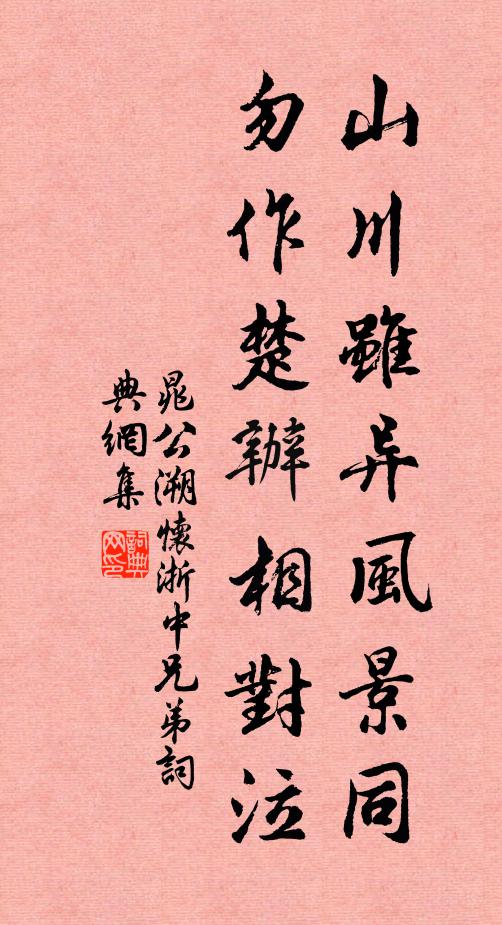 山川雖异風景同
勿作楚辦相對泣
晁公溯懷浙中兄弟詞
典網集
詞典网印